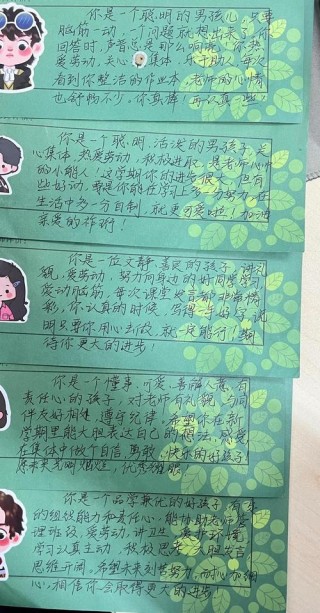 你是一个聪明的男孩儿,只要
脑筋一动,一个问题就想出来了,你
回答时,声音总是那么响亮,你热
爱劳动,关心集体,乐于助人,每次
看到你整洁的作业本,老师的心情
也舒畅不少,你真棒!再认真一些!
你是一个聪明、活泼的男孩子,关
心集体,热爱劳动,积极进取,是老师心中
的小能人!这学期你的进步很大,但有
些好动,要是你能在学习上多一分努力,在
生活中多一分自制,就更可爱啦!加油
亲爱的祚
你是一位文静、善良的孩子,讲礼
貌,爱劳动,努力向身边的好同学学习
爱动脑筋,每次课堂发言都非常精
彩,你认真的时候,写得一手好字,说
明只要你用心去做,就一定能行!期
待你更大的进步!
你是一个懂事、听爱、善解人意、有
责任心的孩子,对老师有礼貌,与同
伴友好相处,遵守纪律。希望你在新
学期里能大胆表达自己的想法,争取
在集体中做个自信、勇敢、快乐的好孩子
原来光明灿烂,优秀耀眼
你是一个品学兼优的好孩子,有强
的组织能力和责任心,能协助老师管
理班级,爱劳动,讲卫生,爱护环境,
学习认真主动,积极思考,大胆发言
思维开阔。希望未来刻苦努力,耐心加细
心,相信你会取得更大的进步!